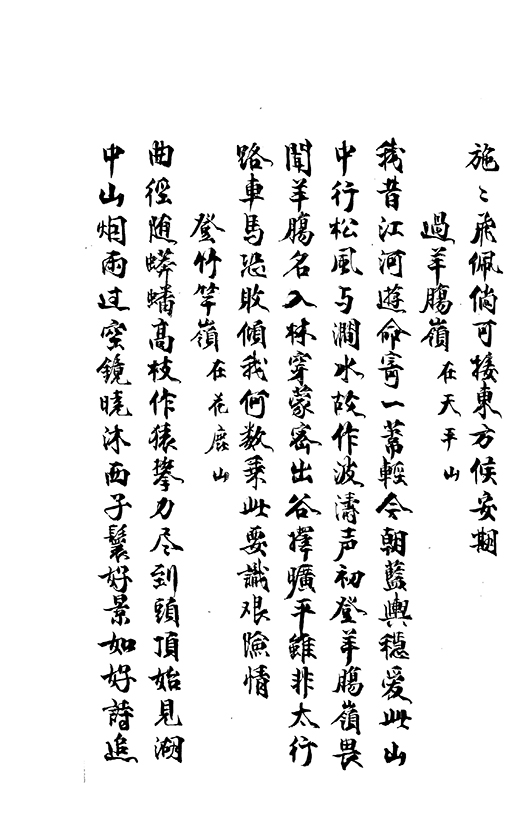 施〻飛佩倘可接東方候安期
過羊腸嶺在天平山
我昔江河遊命寄一葦輕今朝藍輿穩愛此山
中行松風与澗水故作波濤声初登羊腸嶺畏
聞羊腸名入林穿蒙密出谷擇曠平雖非太行
路車馬恐敗傾我何数乘此要識艰險情
登竹竿嶺在花鹿山
曲徑随蟒蟠高枝作猿攀力尽到頭頂始見湖
中山烟雨过宝鏡曉沐西子鬟好景如好詩追